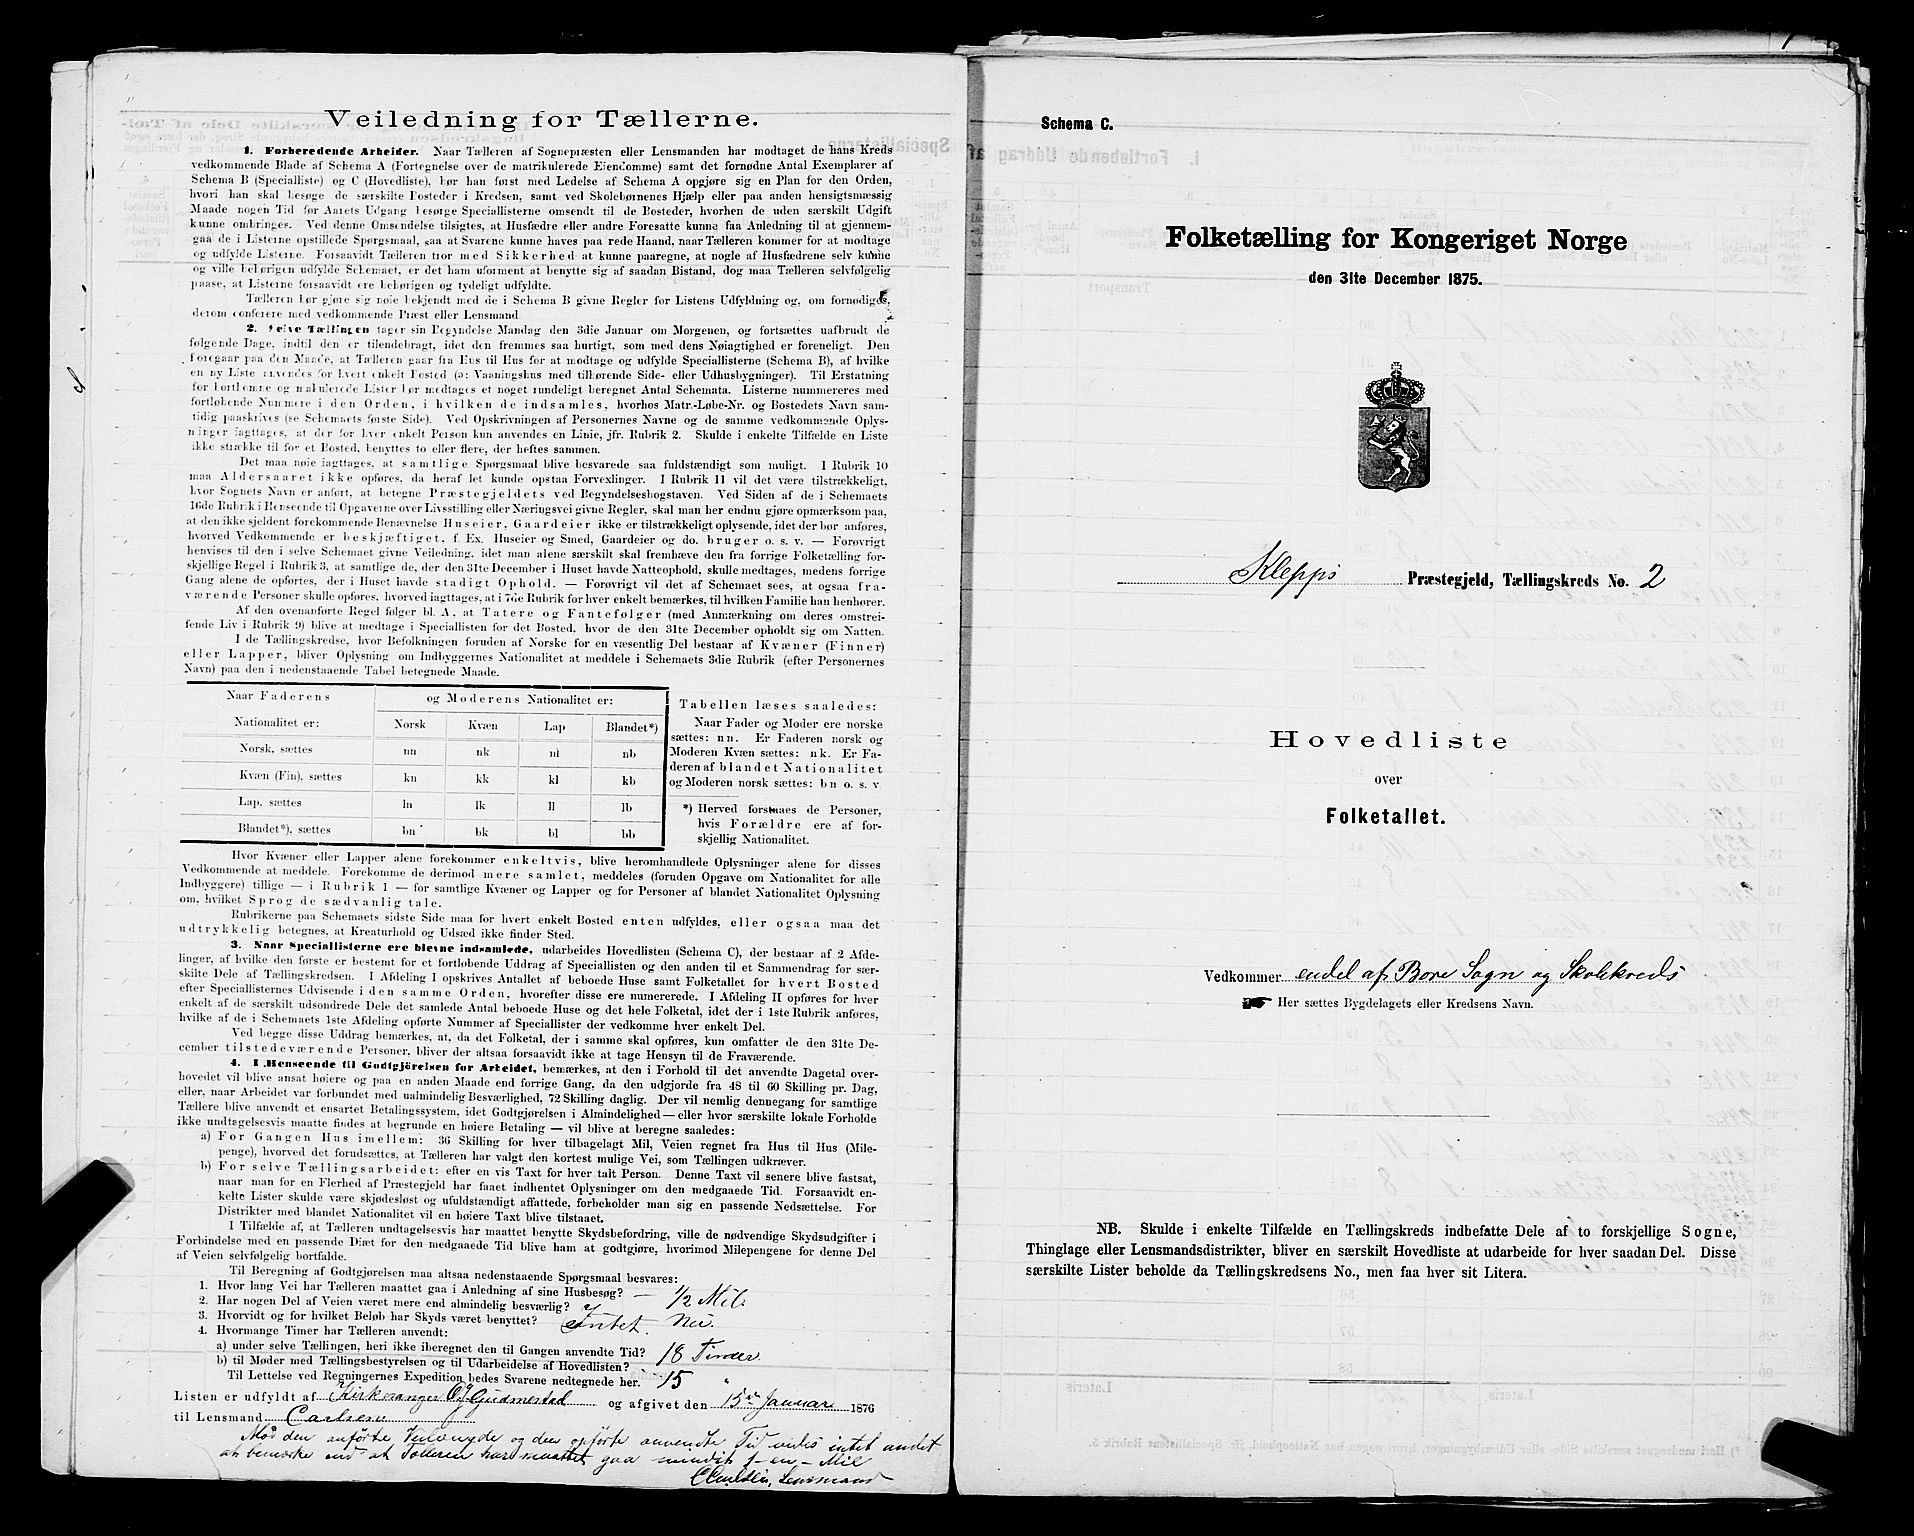 Veiledning for Tællerne.
1. Forberedende Arbeider. Naar Tælleren af Sognepræsten eller Lensmanden har modtaget de hans Kreds
vedkommende Blade af Schema A (Fortegnelse over de matrikulerede Eiendomme) samt det fornødne Antal Exemplarer af
Schema B (Specialliste) og C (Hovedliste), bør han først med Ledelse af Schema A opgjøre sig en Plan for den Orden,
hvori han skal besøge de særskilte Bosteder i Kredsen, samt ved Skolebørnenes Hjælp eller paa anden hensigtsmæssig
Maade nogen Tid før Aarets Udgang besørge Speciallisterne omsendt til de Bosteder, hvorhen de uden særskilt Udgift
kunne ombringes. Ved denne Omsendelse tilsigtes, at Husfædre eller andre Foresatte kunne faa Anledning til at gjennem-
gaa de i Listerne opstillede Spørgsmaal, saa at Svarene kunne haves paa rede Haand, naar Tælleren kommer for at modtage
og udfylde Listerne. Forsaavidt Tælleren tror med Sikkerhed at kunne paaregne, at nogle af Husfædrene selv kunne
og ville behørigen udfylde Schemaet, er det ham uforment at benytte sig af saadan Bistand, dog maa Tælleren selvfølgelig
paase, at Listerne forsaavidt ere behørigen og tydeligt udfyldte.
Tælleren bør gjøre sig nøie bekjendt med de i Schema B givne Regler for Listens Udfyldning og, om fornødiges,
derom conferere med vedkommende Præst eller Lensmand.
2. Selve Tællingen tager sin Begyndelse Mandag den 3die Januar om Morgenen, og fortsættes uafbrudt de
følgende Dage, indtil den er tilendebragt, idet den fremmes saa hurtigt, som med dens Nøiagtighed er foreneligt. Den
foregaar paa den Maade, at Tælleren gaar fra Hus til Hus for at modtage og udfylde Speciallisterne (Schema B), af hvilke
en ny Liste anvendes for hvert enkelt Bosted (ɔ: Vaaningshus med tilhørende Side- eller Udhusbygninger). Til Erstatning
for bortkomne og makulerede Lister bør medtages et noget rundeligt beregnet Antal Schemata. Listerne nummereres med
fortløbende Nummere i den Orden, i hvilken de indsamles, hvorhos Matr.-Løbe-Nr. og Bostedets Navn sam-
tidig paaskrives (se Schemaets første Side). Ved Opskrivningen af Personernes Navne og de samme vedkommende Oplys-
ninger iagttages, at der for hver enkelt Person kun anvendes en Linie, jfr. Rubrik 2. Skulde i enkelte Tilfælde en Liste
ikke strække til for et Bosted, benyttes to eller flere, der heftes sammen.
Det maa nøie iagttages, at samtlige Spørgsmaal blive besvarede saa fuldstændigt som muligt. I Rubrik 10
maa Aldersaaret ikke opføres, da heraf let kunde opstaa Forvexlinger. I Rubrik 11 vil det være tilstrækkeligt,
hvor Sognets Navn er anført, at betegne Præstegjeldets ved Begyndelsesbogstaven. Ved Siden af de i Schemaets
16de Rubrik i Henseende til Opgaverne over Livsstilling eller Næringsvei givne Regler, skal man her endnu gjøre opmærksom paa,
at den ikke sjeldent forekommende Benævnelse Huseier, Gaardeier ikke er tilstrækkeligt oplysende, idet der bør anføres,
hvorved Vedkommende er beskjæftiget. f. Ex. Huseier og Smed, Gaardeier og do. bruger o. s. v. — Forøvrigt
henvises til den i selve Schemaet givne Veiledning, idet man alene særskilt skal fremhæve den fra forrige Folketælling for-
skjellige Regel i Rubrik 3, at samtlige de, der den 31te December i Huset havde Natteophold, skulle medtages, medens forrige
Gang alene de opførtes, der i Huset havde stadigt Ophold. — Forøvrigt vil det af Schemaet sees, at ogsaa fra-
værende Personer skulle opføres, hvorved iagttages, at i 7de Rubrik for hver enkelt bemærkes, til hvilken Familie han henhører.
Af den ovenanførte Regel følger bl. A., at Tatere og Fantefølger (med Anmærkning om deres omstrei-
fende Liv i Rubrik 9) blive at medtage i Speciallisten for det Bosted, hvor de den 31te December opholdt sig om Natten.
I de Tællingskredse, hvor Befolkningen foruden af Norske for en væsentlig Del bestaar af Kvæner (Finner)
eller Lapper, bliver Oplysning om Indbyggernes Nationalitet at meddele i Schemaets 3die Rubrik (efter Personernes
Navn) paa den i nedenstaaende Tabel betegnede Maade.
Naar Faderens Nationalitet er: og Moderens Nationalitet er:
Norsk Kvæn Lap Blandet*)
Norsk, sættes nn nk nl nb
Kvæn (Fin), sættes kn kk kl kb
Lap, sættes ln lk ll lb
Blandet*), sættes bn bk bl bb
Tabellen læses saaledes:
Naar Fader og Moder ere norske
sættes: nn. Er Faderen norsk og
Moderen Kvæn sættes: nk. Er Fa-
deren af blandet Nationalitet
og Moderen norsk sættes: bn o. s. v
*) Herved forstaaes de Personer,
hvis Forældre ere af for-
skjellig Nationalitet.
Hvor Kvæner eller Lapper alene forekommer enkeltvis, blive heromhandlede Oplysninger alene for disses
Vedkommende at meddele. Forekomme de derimod mere samlet, meddeles (foruden Opgave om Nationalitet for alle
Indbyggere) tillige — i Rubrik 1 — for samtlige Kvæner og Lapper og for Personer af blandet Nationalitet Oplysning
om, hvilket Sprog de sædvanlig tale.
Rubrikerne paa Schemaets sidste Side maa for hvert enkelt Bosted enten udfyldes, eller ogsaa maa det
udtrykkelig betegnes, at Kreaturhold og Udsæd ikke finder Sted.
3. Naar Speciallisterne ere blevne indsamlede, udarbeides Hovedlisten (Schema C), der bestaar af 2 Afde-
linger, af hvilke den første er bestemt for et fortløbende Uddrag af Speciallisten og den anden til et Sammendrag for sær-
skilte Dele af Tællingskredsen. I Afdeling I opskrives Antallet af beboede Huse samt Folketallet for hvert Bosted
efter Speciallisternes Udvisende i den samme Orden, hvorefter disse ere numererede. I Afdeling II opføres for hver
enkelt af de særskilt udsondrede Dele det samlede Antal beboede Huse og det hele Folketal, idet der i 1ste Rubrik anføres,
hvilke af de i Schemaets 1ste Afdeling opførte Nummer af Speciallister der vedkomme hver enkelt Del.
Ved begge disse Uddrag bemærkes, at, da det Folketal, der i samme skal opføres, kun omfatter de den 31te De-
cember tilstedeværende Personer, bliver der altsaa forsaavidt ikke at tage Hensyn til de Fraværende.
4. I Henseende til Godtgjörelsen for Arbeidet, bemærkes, at den i Forhold til det anvendte Dagetal over-
hovedet vil blive ansat høiere og paa en anden Maade end forrige Gang, da den udgjorde fra 48 til 60 Skilling pr. Dag,
eller, naar Arbeidet var forbundet med ualmindelig Besværlighed, 72 Skilling daglig. Der vil nemlig dennegang for samtlige
Tællere blive anvendt et ensartet Betalingssystem, idet Godtgjørelsen i Almindelighed — eller hvor særskilte lokale Forholde
ikke undtagelsesvis maatte findes at begrunde en høiere Betaling — vil blive at beregne saaledes:
a) For Gangen Hus imellem: 36 Skilling for hver tilbagelagt Mil, Veien regnet fra Hus til Hus (Mile-
penge), hvorved det forudsættes, at Tælleren har valgt den kortest mulige Vei, som Tællingen udkræver.
b) For selve Tællingsarbeidet: efter en vis Taxt for hver talt Person. Denne Taxt vil senere blive fastsat,
naar man for en Flerhed af Præstegjeld har faaet indhentet Oplysninger om den medgaaede Tid. Forsaavidt en-
kelte Lister skulde være skjødesløst og ufuldstændigt affattede, forbeholder man sig en passende Nedsættelse. For
Distrikter med blandet Nationalitet vil en høiere Taxt blive tilstaaet.
I Tilfælde af, at Tælleren undtagelsesvis har maattet benytte Skydsbefordring, ville de nødvendige Skydsudgifter i
Forbindelse med en passende Diæt for den medgaaede Tid blive ham at godtgjøre, hvorimod Milepengene for denne Del
af Veien selvfølgelig bortfalde.
Til Beregning af Godtgjørelsen maa altsaa nedenstaaende Spørgsmaal besvares:
1. Hvor lang Vei har Tælleren maattet gaa i Anledning af sine Husbesøg? — 1/2 Mil.
2. Har nogen Del af Veien været mere end almindelig besværlig? Nei.
3. Hvorvidt og for hvilket Beløb har Skyds været benyttet? intet.
4. Hvormange Timer har Tælleren anvendt:
a) under selve Tællingen, heri ikke iberegnet den til Gangen anvendte Tid? 18 Timer.
b) til Møder med Tællingsbestyrelsen og til Udarbeidelse af Hovedlisten? 15 "
Til Lettelse ved Regningernes Expedition bedes Svarene nedtegnede her.
Listen er udfyldt af Kirkesanger O Gudmestad og afgivet den 15de Januar 1876
til Lensmand Carlsen
Mod den anførte Veilengde og den opførte anvendte Tid vides intet andet
at bemærke end at Tælleren har maattet gaa mindst 1 – en – Mil
CCarlsen, Lensmand
Schema C.
Folketælling for Kongeriget Norge
den 31te December 1875.
Klepps Præstegjeld, Tællingskreds No. 2
Hovedliste
over
Folketallet.
Vedkommer endel af Bore Sogn og Skolekreds
Her sættes Bygdelagets eller Kredsens Navn.
NB. Skulde i enkelte Tilfælde en Tællingskreds indbefatte Dele af to forskjellige Sogne,
Thinglage eller Lensmandsdistrikter, bliver en særskilt Hovedliste at udarbeide for hver saadan Del. Disse
særskilte Lister beholde da Tællingskredsens No., men faa hver sit Litera.